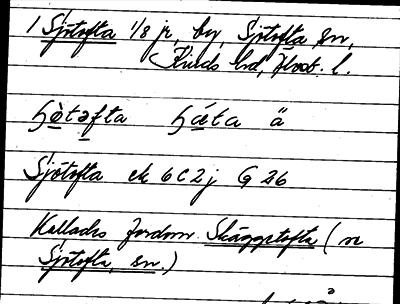 1 Sjötofta 1/8 jr, by, Sjötofta sn,
Kinds hd, Älvsb. l.
ʃə̀təfta ʃǽta ä
Sjötofta ek 6C2j G 26
Kallades fordom Skäggetofta (se
Sjötofta, sn.)